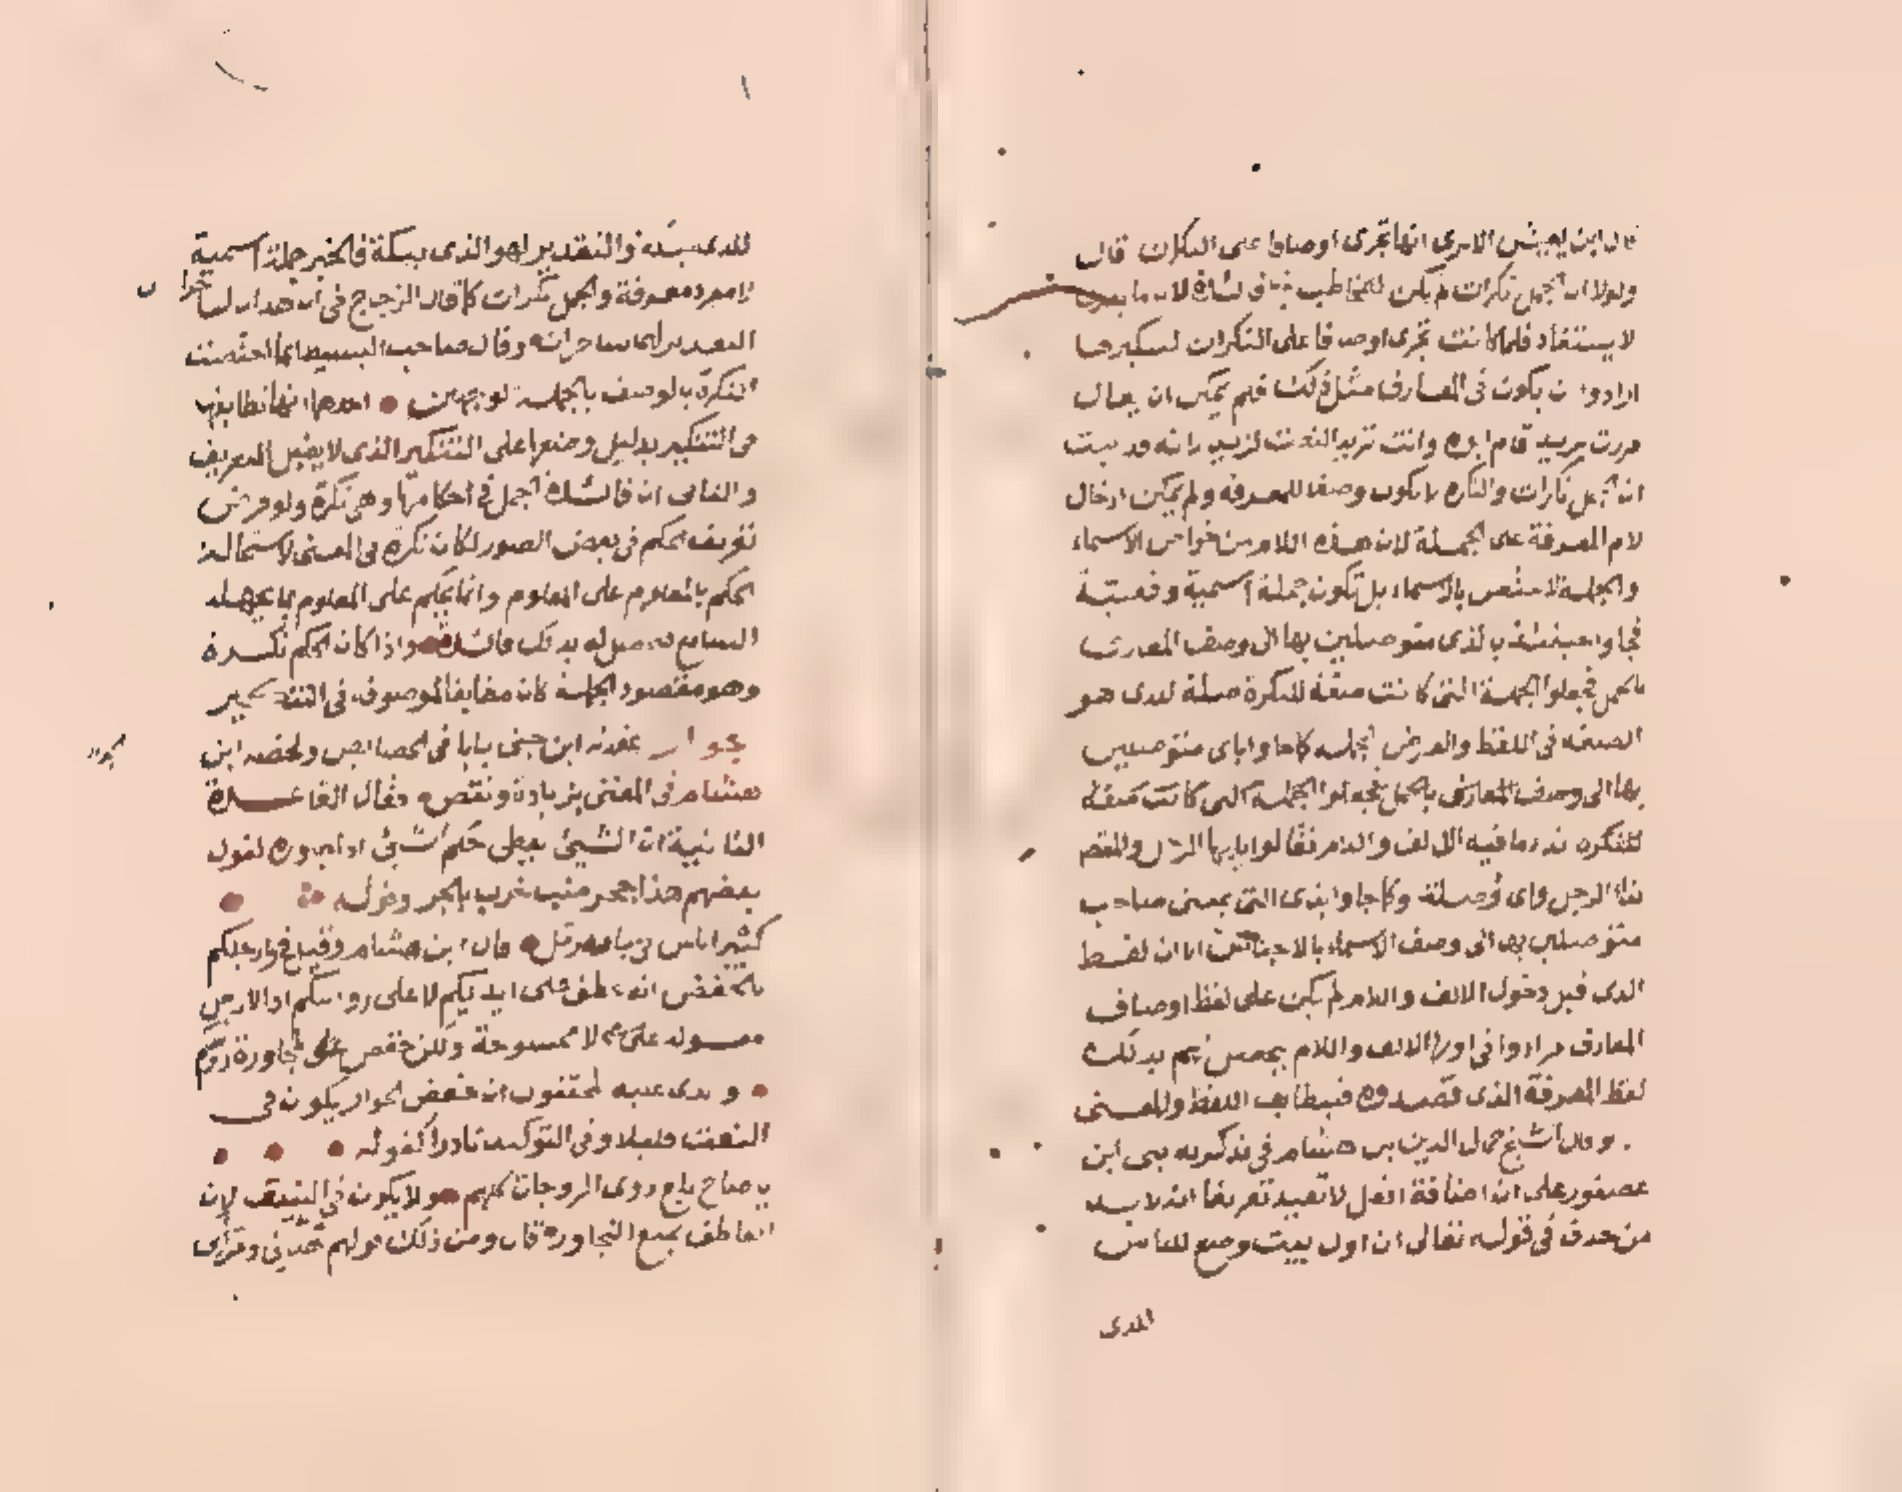 قال ابن يعيش الا ترى انها تجرى اوصافا على النكرات قال
ولولا ان الجمل نكرات لم يكن للمخاطب فيها فائدة لان ما يعرف
لا يستفاد فلما كانت تجرى اوصافا على النكرات لتنكيرها
ارادوا ان يكون فى المعارف مثل ذلك فلم يمكن ان يقال
مررت بزيد قام ابوه وانت تريد النعت لزيد بانه قد ثبت
ان الجمل نكرات والنكرة لا تكون وصفا للمعرفة ولم يمكن ادخال
لام المعرفة على الجملة لان هذه اللام من خواص الاسماء
والجملة لا تختص بالاسماء بل تكون جملة اسمية وفعلية
فجاوا حينئذ بالذى متوصلين بها الى وصف المعارف
بالجمل فجعلوا الجملة التى كانت صفة للنكرة صلة للذى هو
الصفة فى اللفظ والغرض الجملة كما جاوا باى متوصلين
بها الى وصف المعارف بالجمل فجعلوا الجملة التى كانت صفة
للنكرة نداء ما فيه الالف واللام فقالوا يا ايها الرجل والمقصود
نداء الرجل واى وصلة وكما جاوا بذى التى بمعنى صاحب
متوصلين بها الى وصف الاسماء بالاجناس الا ان لفظ
الذى قبل دخول الالف واللام لم يكن على لفظ اوصاف
المعارف فزادوا فى اولها الالف واللام ليحصل لهم بذلك
لفظ المعرفة الذى قصدوه فيتطابق اللفظ والمعنى
وقال الشيخ جمال الدين بن هشام فى تذكرته بنى ابن
عصفور على ان اضافة افعل لا تفيد تعريفا انه لا بد
من حذف فى قوله تعالى ان اول بيت وضع للناس
للذى
للذى ببكة والتقدير لهو الذى ببكة فالخبر جملة اسمية
لا مفرد معرفة والجمل نكرات كما قال الزجاج فى ان هذان لساحران
التقدير لهما ساحران وقال صاحب البسيط انما اختصت
النكرة بالوصف بالجملة لوجهين احدهما انها تطابقها
فى التنكير بدليل وضعها على التنكير الذى لا يقبل التعريف
والثانى ان فائدة الجمل فى احكامها وهى نكرة ولو فرض
تعريف الحكم فى بعض الصور لكان نكرة فى المعنى لاستحالة
الحكم بالمعلوم على المعلوم وانما يحكم على المعلوم بما يجهله
السامع فتحصل له بذلك فائدة واذا كان الحكم نكرة
وهو مقصود الجملة كان مطابقا للموصوف فى التنكير
الجوار
جوار عقد له ابن جنى بابا فى الخصائص ولخصه ابن
هشام فى المغنى بزيادة ونقص فقال القاعدة
الثانية ان الشيئ يعطى حكم الشيئ اذا جاوره لقول
بعضهم هذا جحر ضب خرب بالجر وقوله
كبير اناس فى بجاد مزمل قال ابن هشام وقيل فى وارجلكم
بالخفض انه عطف على ايديكم لا على رؤسكم اذ الارجل
مغسولة لا ممسوحة ولكن خفض على مجاورة رؤسكم
والذى عليه المحققون ان خفض الجوار يكون فى
النعت قليلا وفى التوكيد نادرا كقوله
يا صاح بلغ ذوى الزوجات كلهم ولا يكون فى النسق لان
العاطف يمنع التجاورة قال ومن ذلك قولهم هنأنى ومرأنى